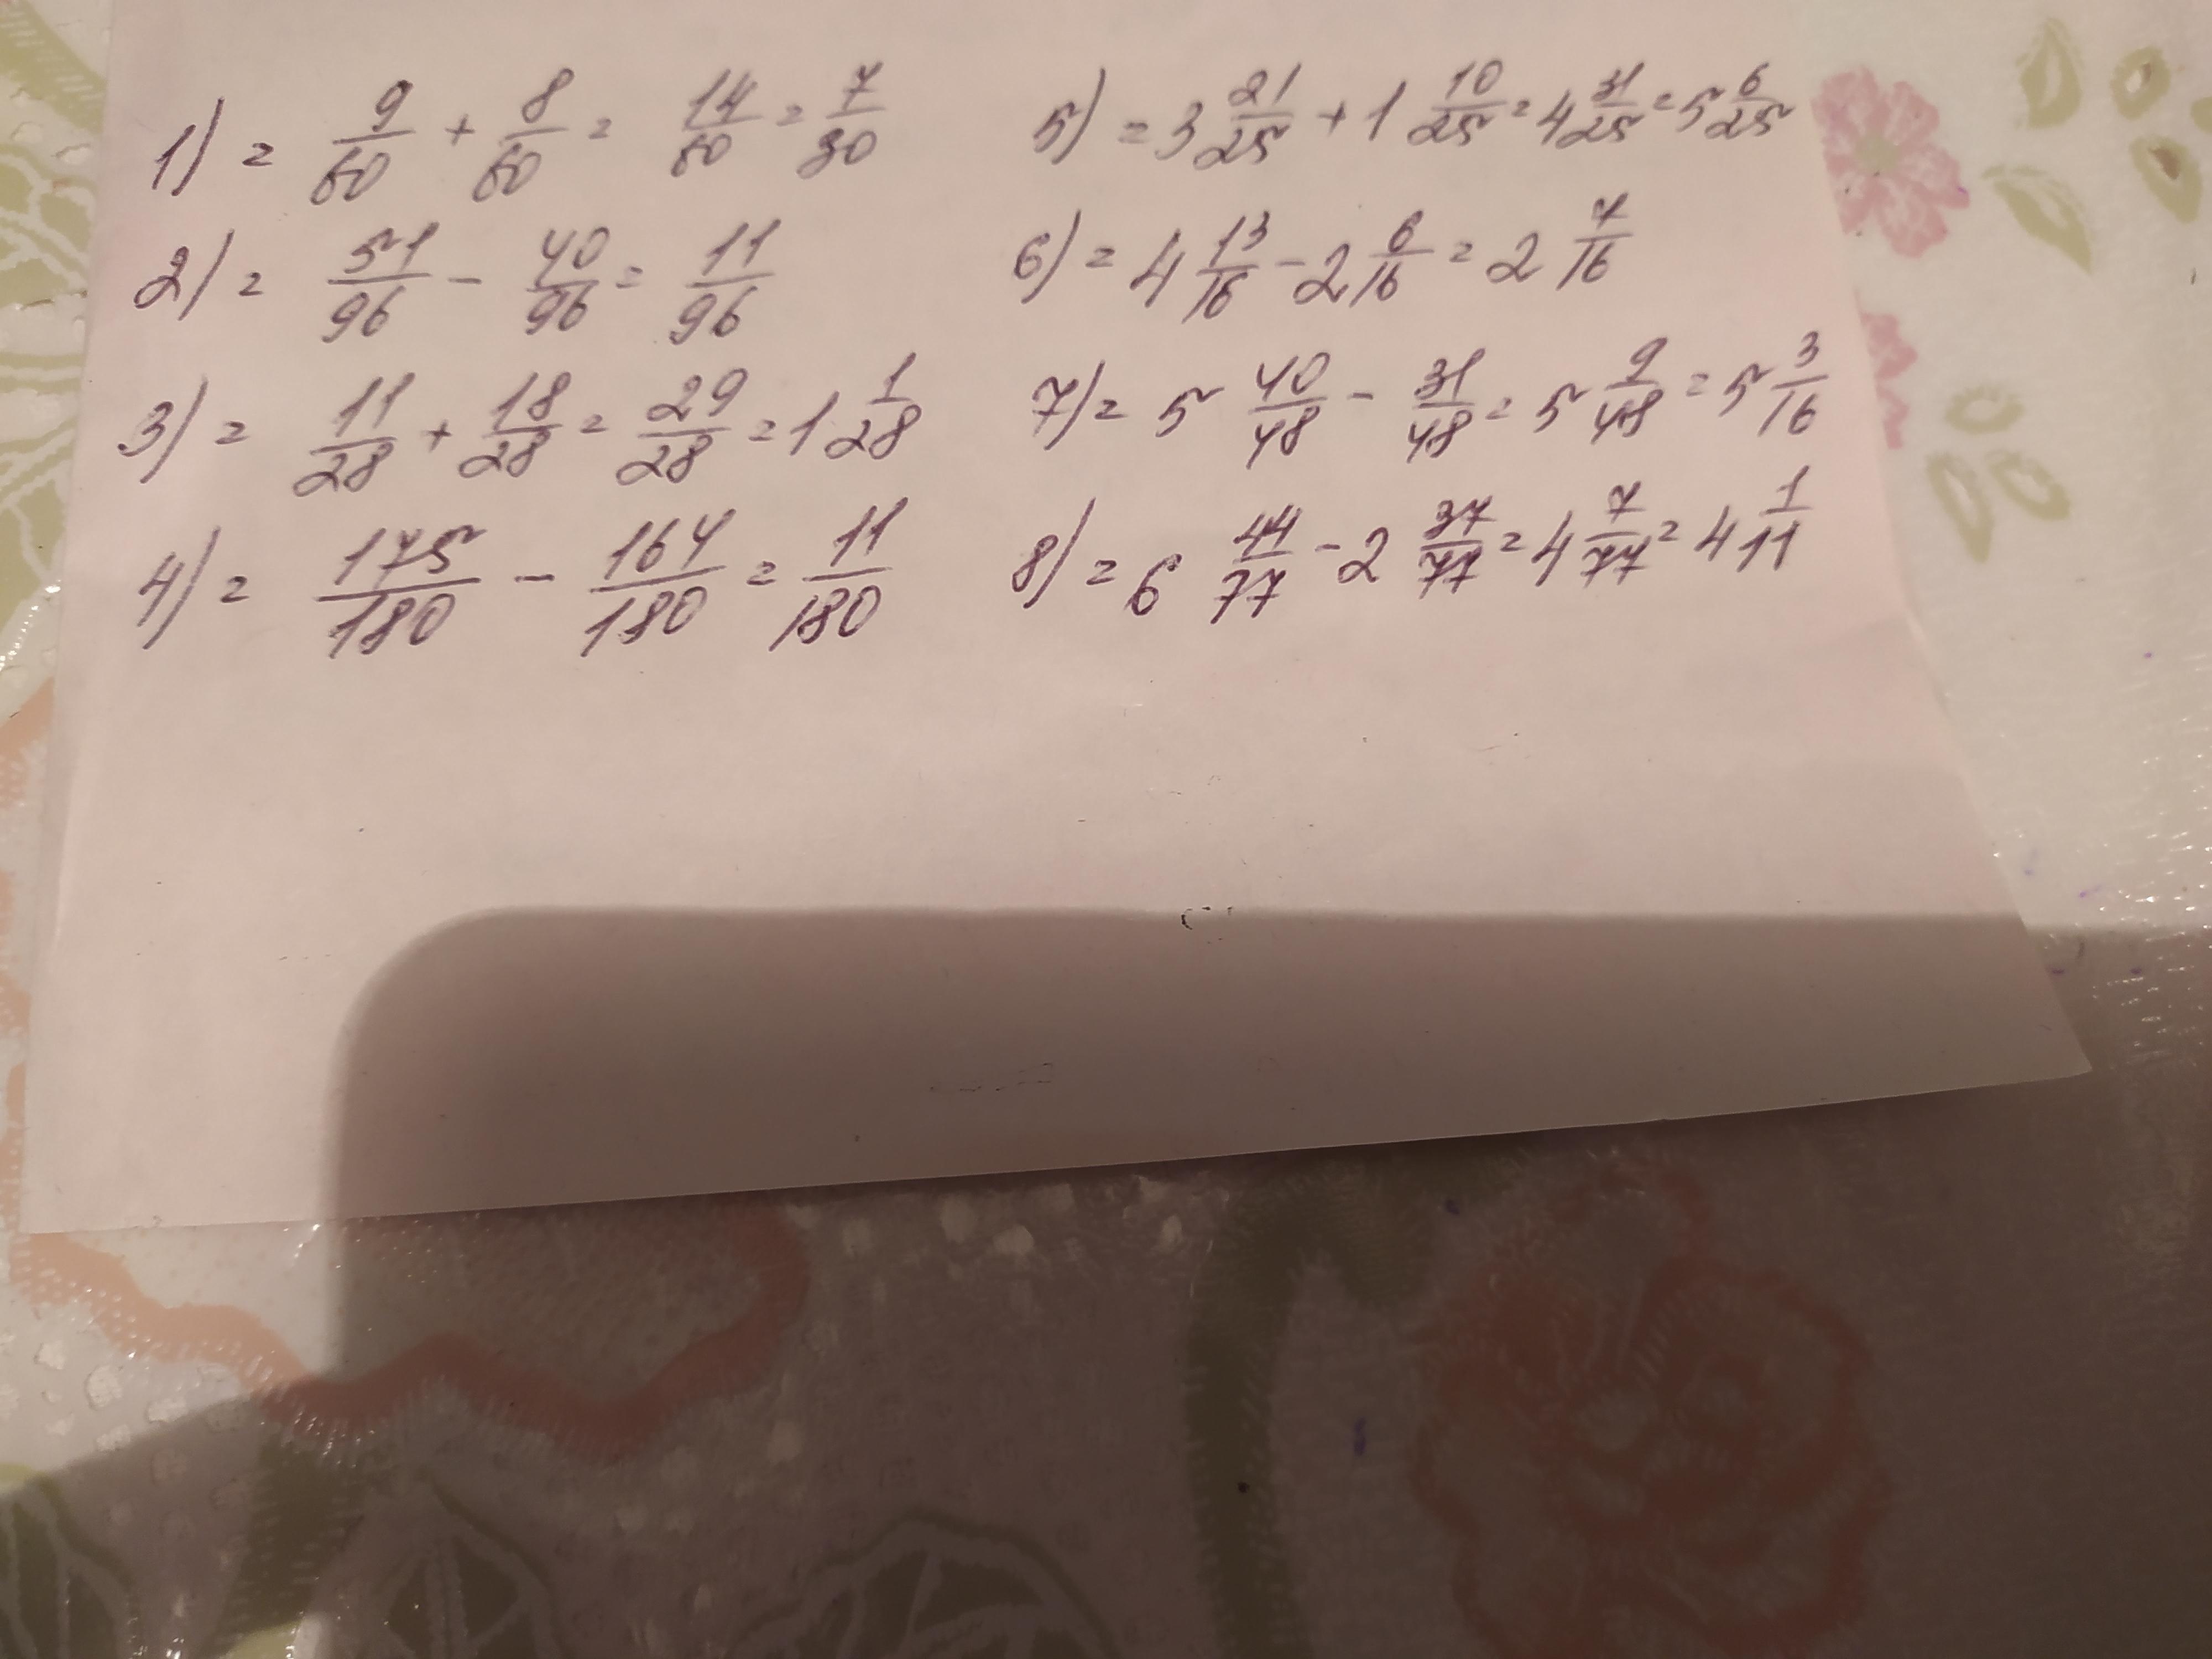 1) = 9/60 + 8/60 = 14/60 = 7/30
2) = 51/96 - 40/96 = 11/96
3) = 11/28 + 18/28 = 29/28 = 1 1/28
4) = 175/180 - 164/180 = 11/180
5) = 3 21/25 + 1 10/25 = 4 31/25 = 5 6/25
6) = 4 13/16 - 2 6/16 = 2 7/16
7) = 5 40/48 - 31/48 = 5 9/48 = 5 3/16
8) = 6 44/77 - 2 37/77 = 4 7/77 = 4 1/11